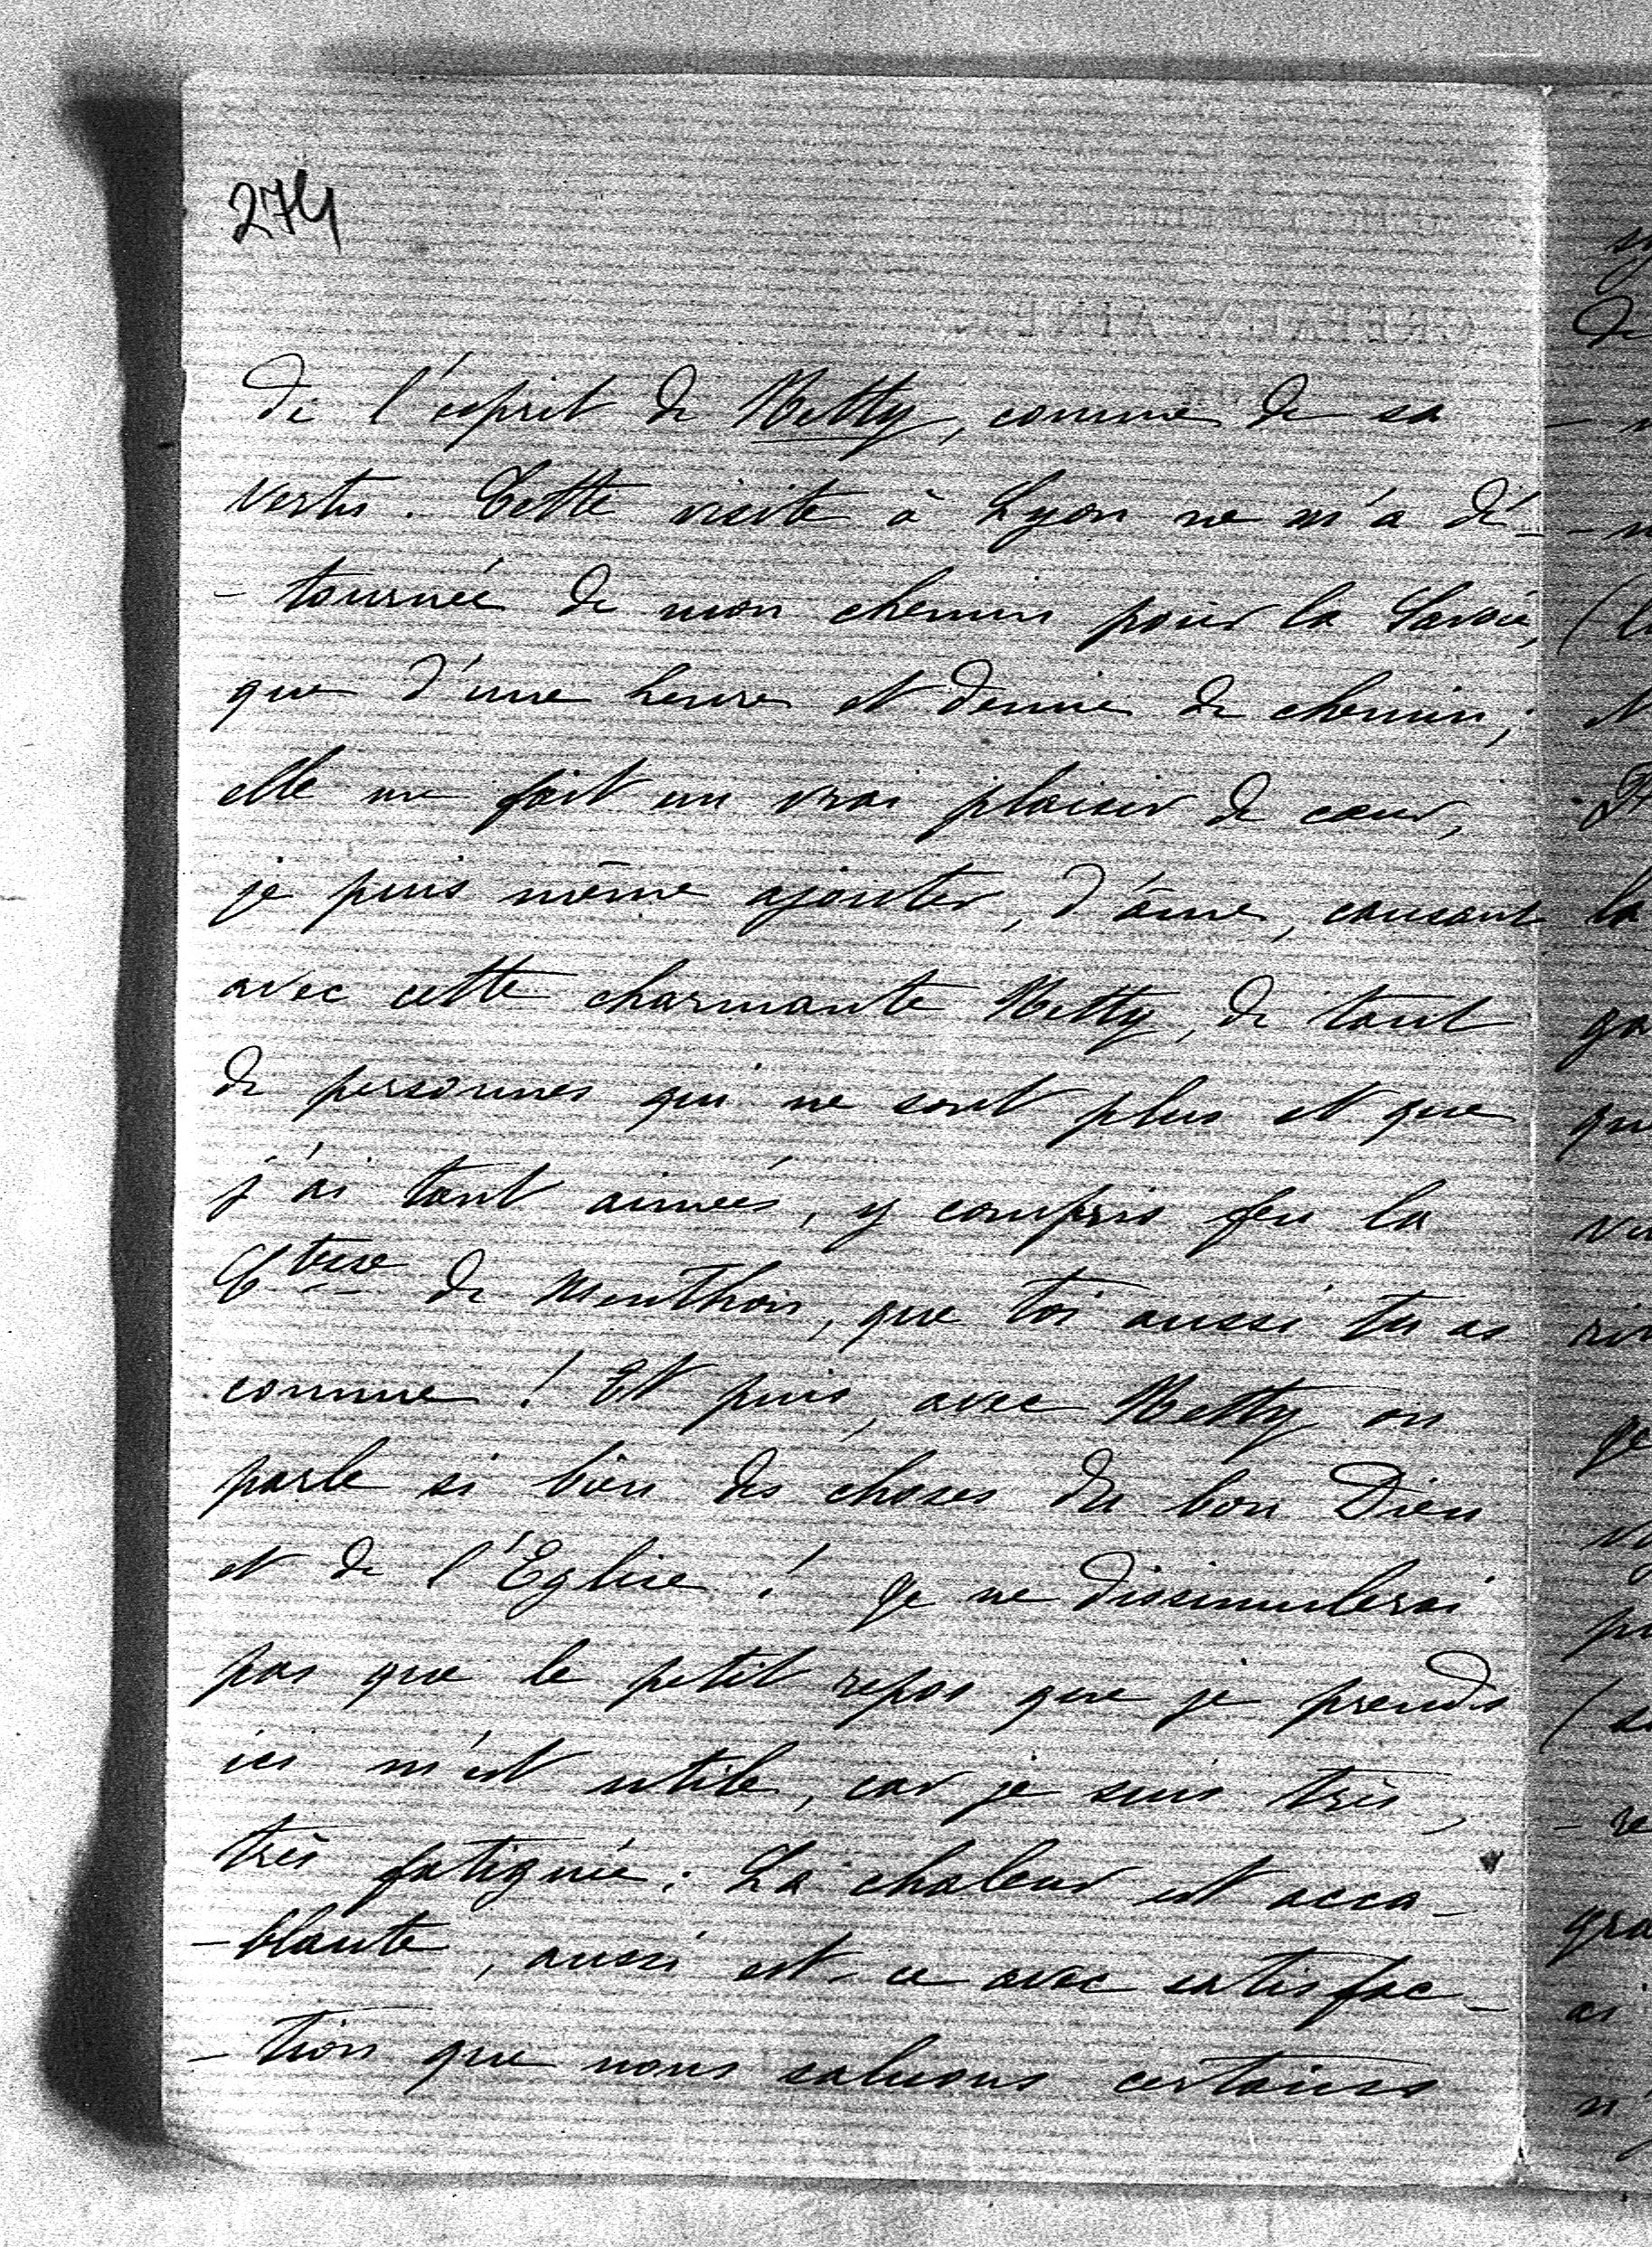 274
de l'esprit de Netty, comme de sa
vertu. Cette visite à Lyon ne m'a dé-
-tournée de mon chemin pour la Savoie,
que d'une heure et demie de chemin;
elle me fait un vrai plaisir de cœur,
je puis même ajouter, d'âme, causant
avec cette charmante Netty, de tant
de personnes qui ne sont plus et que
j'ai tant aimées, y compris feu la
Ctesse de Menthon, que toi aussi tu as
connue! Et puis, avec Netty on
parle si bien des choses du bon Dieu
et de l'Église! Je ne dissimulerai
pas que le petit repos que je prends
ici m'est utile, car je suis très,
très fatiguée: La chaleur est acca-
-blante, aussi est-ce avec satisfac-
-tion que nous saluons certains